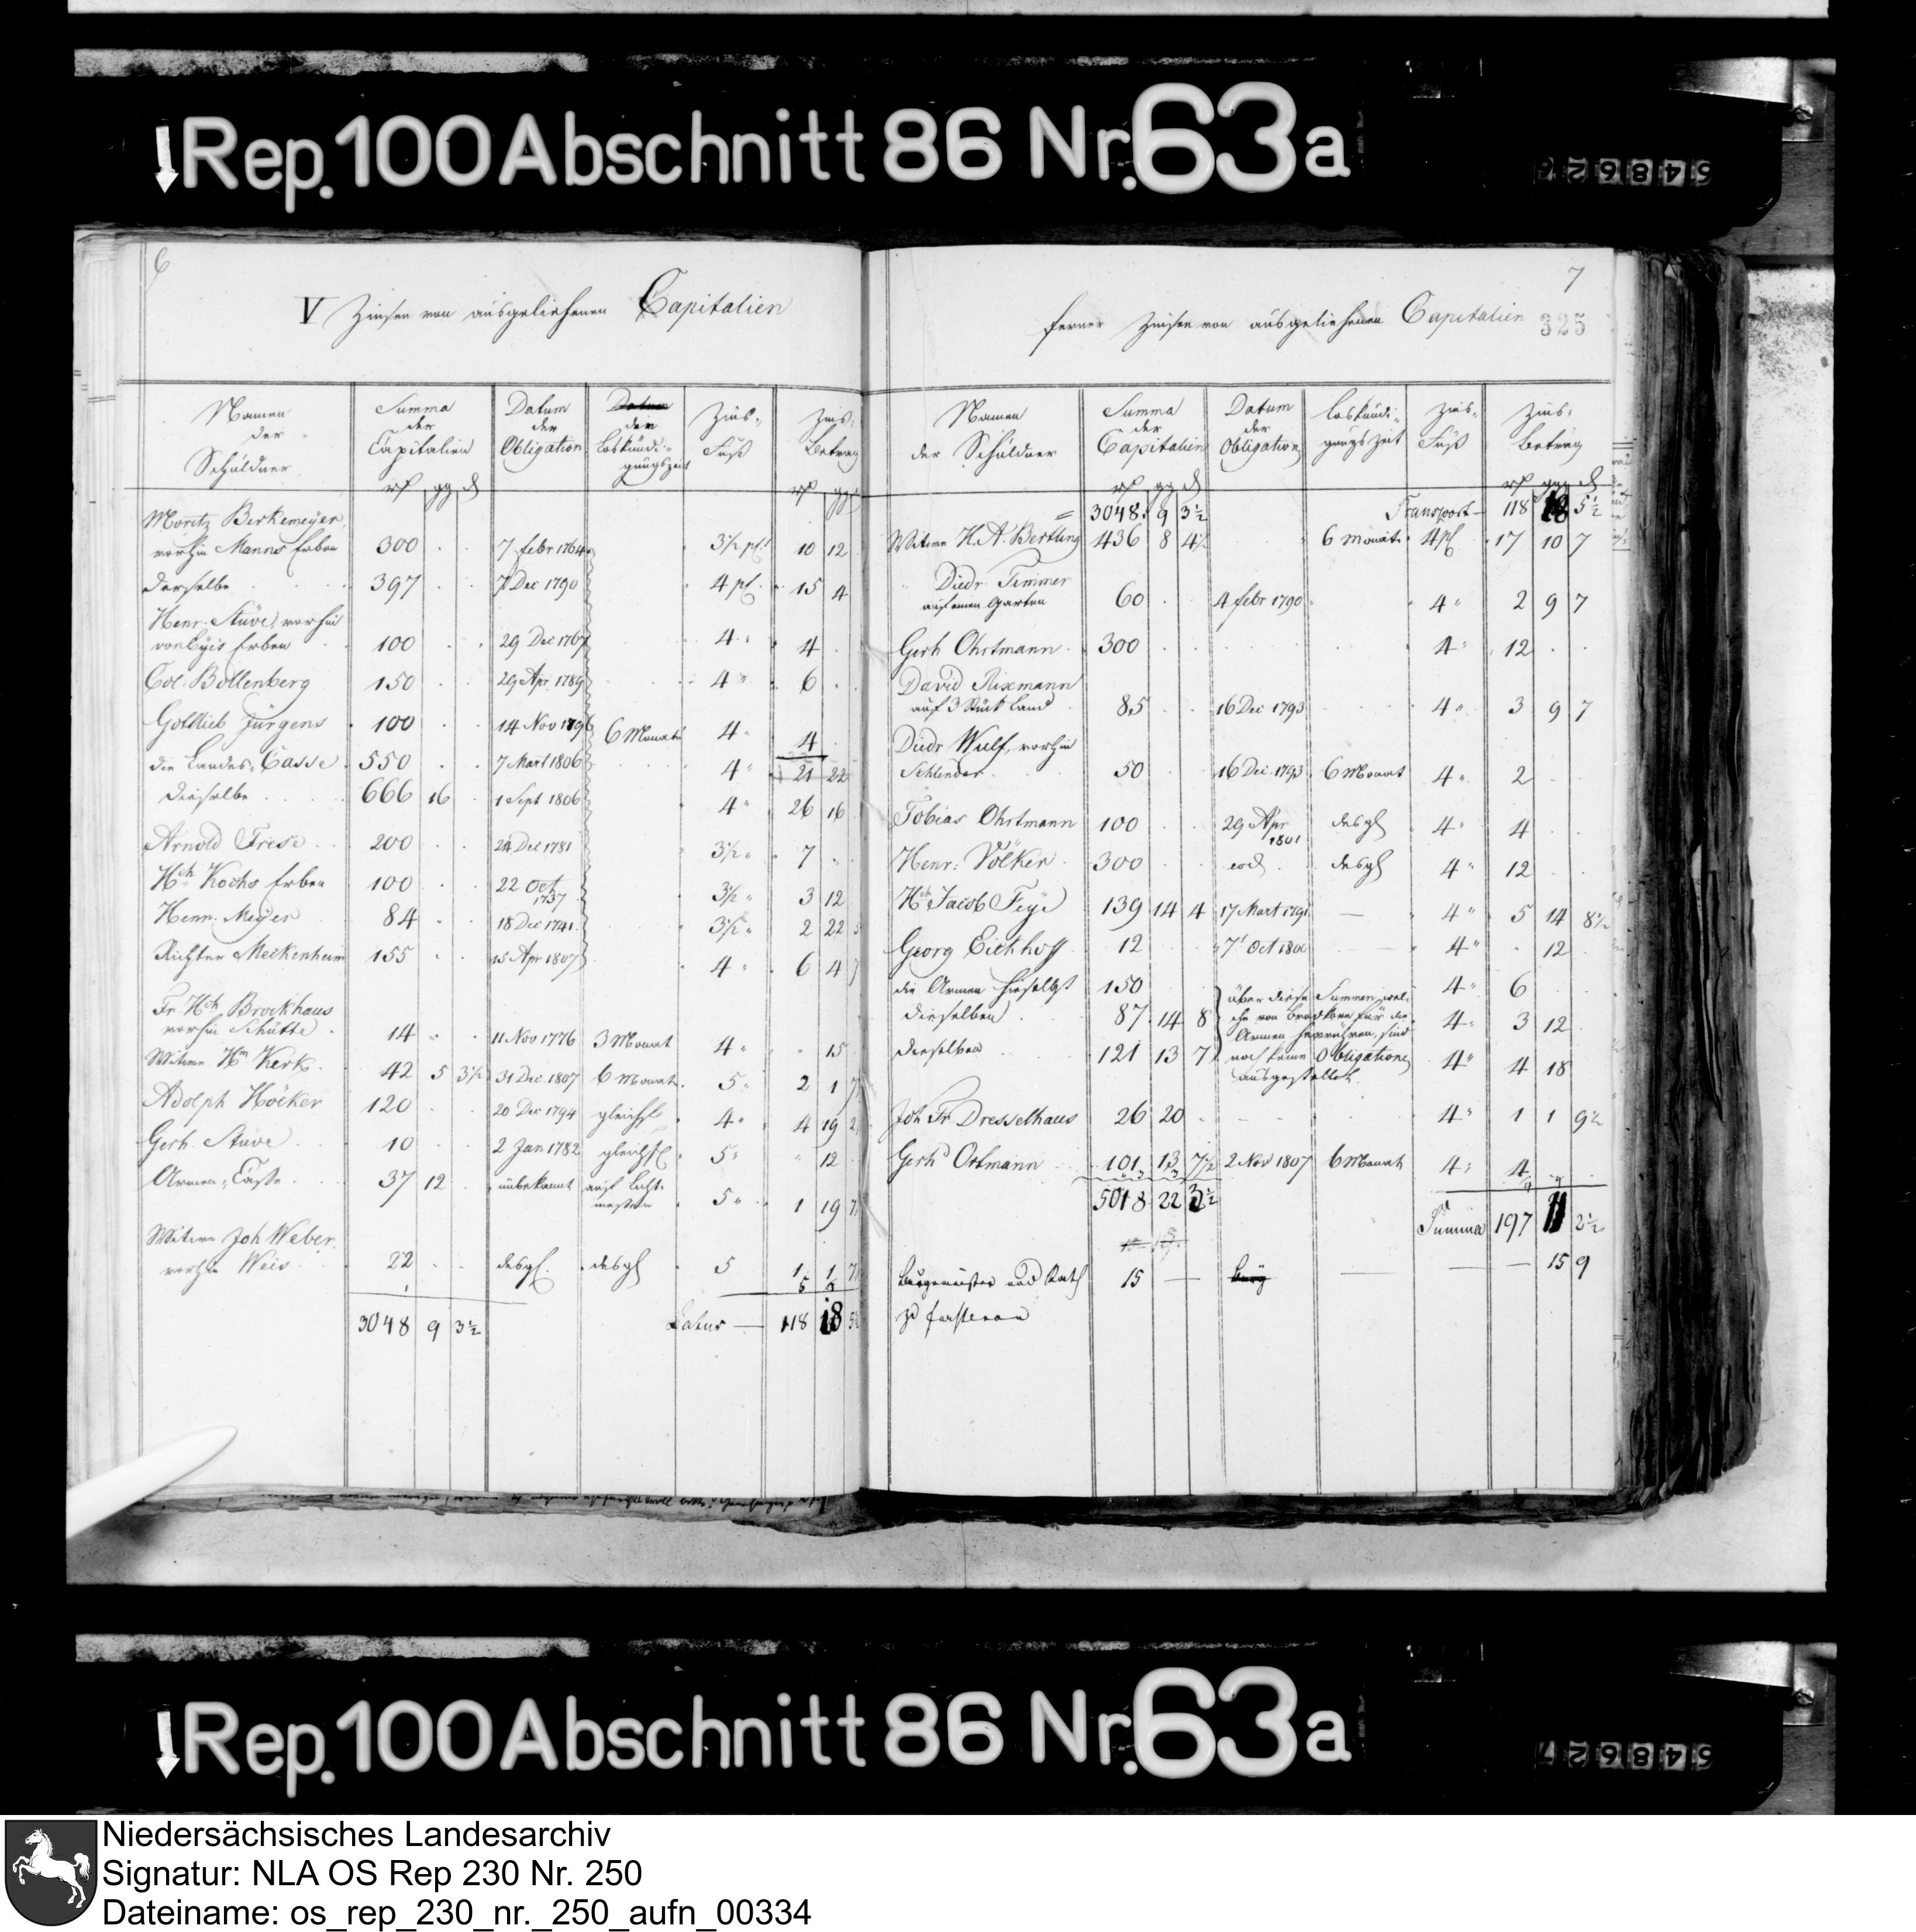 Rep. 100 Abschnitt 86 Nr. 63a
548626
6
V Zinsen von ausgeliehenen Capitalien
Namen der Schuldner
Summa der Capitalien
Datum der Obligation
Datum der Loskündigungszeit
Zins-Fuß
Zins-Betrag
rh gg d
rh gg
Moritz Berkemeyer,
vorhin Manns Erben 300 7 febr 1764 3½ pC 10 12
derselbe 397 7 Dec 1790 4 pC 15 4
Henr. Stüve, vorhin
Erben 100 29 Dec 1767 4 " 4
Col. Bollenberg 150 29 Apr. 1789 4 " 6
Gottlieb Jürgens 100 14 Nov 1796 6 Monate 4 " 4
die Landes-Casse 550 7 Mart 1806 4 " 21 22
dieselbe 666 16 1 Sept 1806 4 " 26 16
Arnold Frese 200 24 Dec 1781 3½ " 7
Hch Kochs Erben 100 22 Oct 1737 3½ " 3 12
Henr. Meyer 84 18 Dec 1741 3½ " 2 22
Richter Meckenheim 155 15 Apr 1807 4 " 6 4
Fr. Hch Brockhaus
vorhin Schütte 14 11 Nov 1776 3 Monat 4 " 15
Witwe Hm Kerk 42 5 3½ 31 Dec. 1807 6 Monat 5 " 2 1
Adolph Höcker 120 20 Dec 1794 gleichfls 4 " 4 19 2
Gerh. Stüve 10 2 Jan 1782 gleichfls 5 " 12
Armen-Casse 37 12 unbekannt auf Licht-
messen 5 " 1 19
Witwe Joh Weber,
vorhin Weis 22 desgl. desgl 5 1 1
3048 9 3½ Latus — 118 18 5½
7
ferner Zinsen von ausgeliehenen Capitalien 325
Namen der Schuldner
Summa der Capitalien
Datum der Obligation
Loskündi-
gungszeit
Zins-Fuß
Zins-Betrag
rh gg d
rh gg d
3048 9 3½ Transport — 118 18 5½
Witwe H. A. Bertling 436 8 4½ 6 Monate 4 pC 17 10 7
Diedr. Timmer
auf einen Garten 60 4 febr 1790 4 " 2 9 7
Gerh Ohrtmann 300 4 " 12
David Rixmann
auf 3 Stück Land 85 16 Dec 1793 4 " 3 9 7
Diedr Wulf, vorhin
Schlinder 50 16 Dec. 1793 6 Monat 4 " 2
Tobias Ohrtmann 100 29 Apr 1801 desgl 4 " 4
Henr: Völker 300 eod. desgl 4 " 12
Hch Jacob Feye 139 14 4 17 Mart 1791 — 4 " 5 14 8½
Georg Eickhoff 12 7 Oct 1800 4 " 12
die Armen hieselbst 150 4 " 6
dieselben 87 14 8 4 " 3 12
dieselben 121 13 7 4 " 4 18
über diese Summen, wel-
che von für die
Armen herrühren, sind
noch keine Obligationen
ausgestellet.
Joh Fr. Dresselhaus 26 20 4 " 1 1 9½
Gerhd Ortmann 101 13 7½ 2 Nov 1807 6 Monat 4 " 4
5018 22 3½ Summa 197 11 2½
Burgemeister und Rath 15 — — — — 15 9
zu Fürstenau
Rep. 100 Abschnitt 86 Nr. 63a
548627
Niedersächsisches Landesarchiv
Signatur: NLA OS Rep 230 Nr. 250
Dateiname: os_rep_230_nr._250_aufn_00334